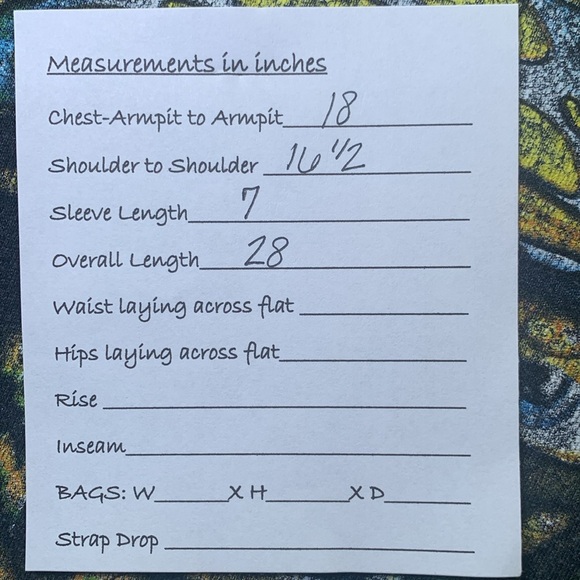 Measurements in inches
Chest-Armpit to Armpit 18
Shoulder to Shoulder 16 1/2
Sleeve Length 7
Overall Length 28
Waist laying across flat
Hips laying across flat
Rise
Inseam
BAGS: W X H X D
Strap Drop